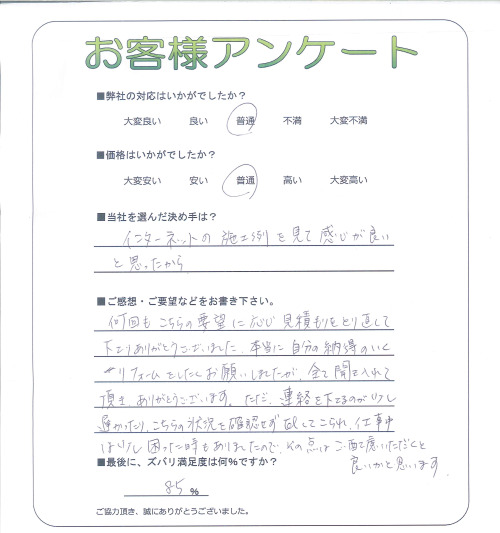 お客様アンケート
■弊社の対応はいかがでしたか？
大変良い　良い　普通　不満　大変不満
■価格はいかがでしたか？
大変安い　安い　普通　高い　大変高い
■当社を選んだ決め手は？
インターネットの施工例を見て感じが良い
と思ったから
■ご感想・ご要望などをお書き下さい。
何回もこちらの要望に応じ見積もりをとり直して
下さりありがとうございました。本当に自分の納得のいく
リフォームをしたくお願いしましたが、全て聞き入れて
頂き、ありがとうございます。ただ、連絡を下さるのが少し
遅かったり、こちらの状況を確認せず
してこられ、仕事中
は少し困った時もありましたので、その点はご配慮いただくと
良いかと思います。
■最後に、ズバリ満足度は何％ですか？
85 %
ご協力頂き、誠にありがとうございました。